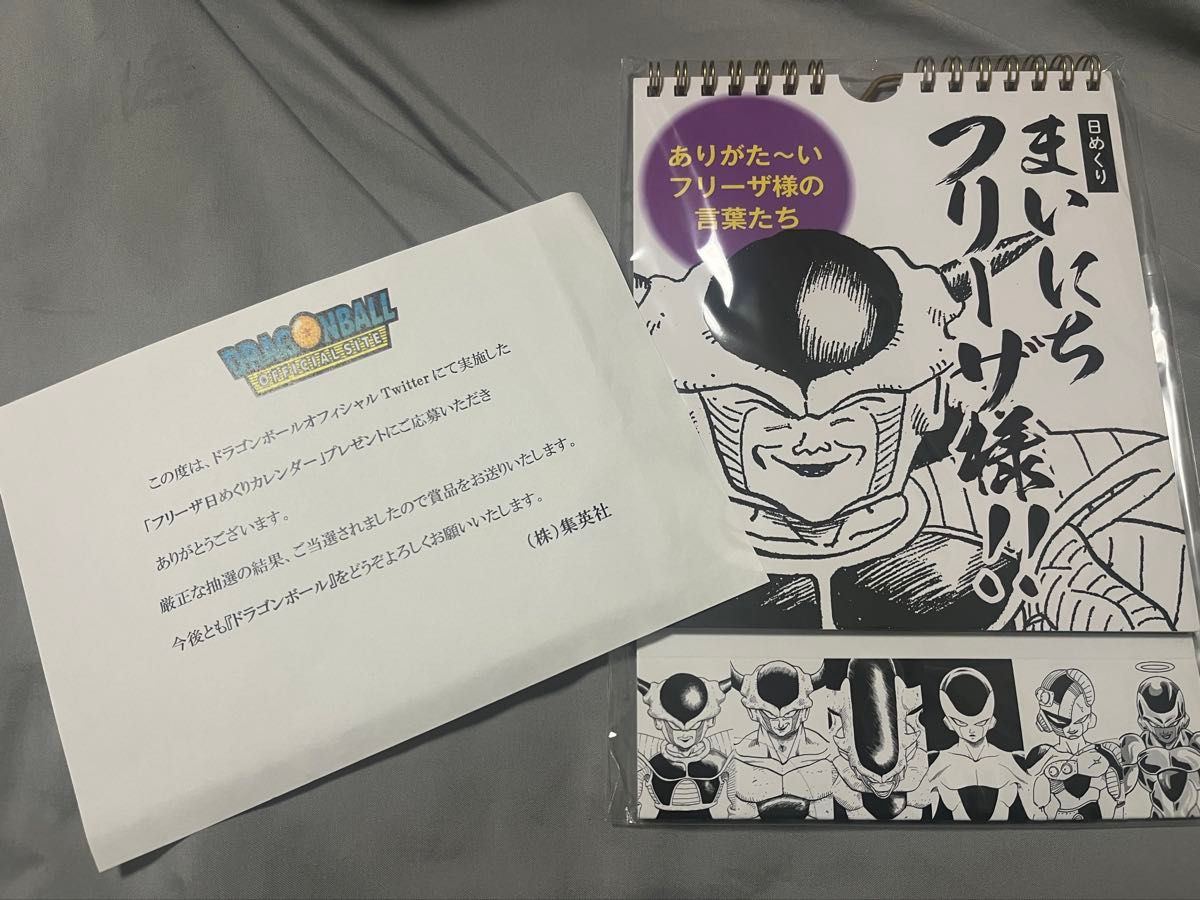 DRAGONBALL
OFFICIAL SITE
この度は、ドラゴンボールオフィシャルTwitterにて実施した
「フリーザ日めくりカレンダー」プレゼントにご応募いただき
ありがとうございます。
厳正な抽選の結果、ご当選されましたので賞品をお送りいたします。
今後とも『ドラゴンボール』をどうぞよろしくお願いいたします。
(株)集英社
ありがた〜い
フリーザ様の
言葉たち
日めくり
まいにち
フリーザ様!!